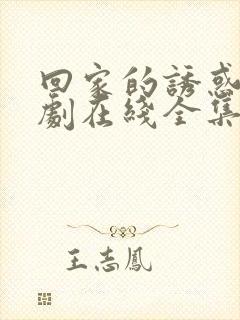 回家的誘惑
劇在綫全集
王志鳳